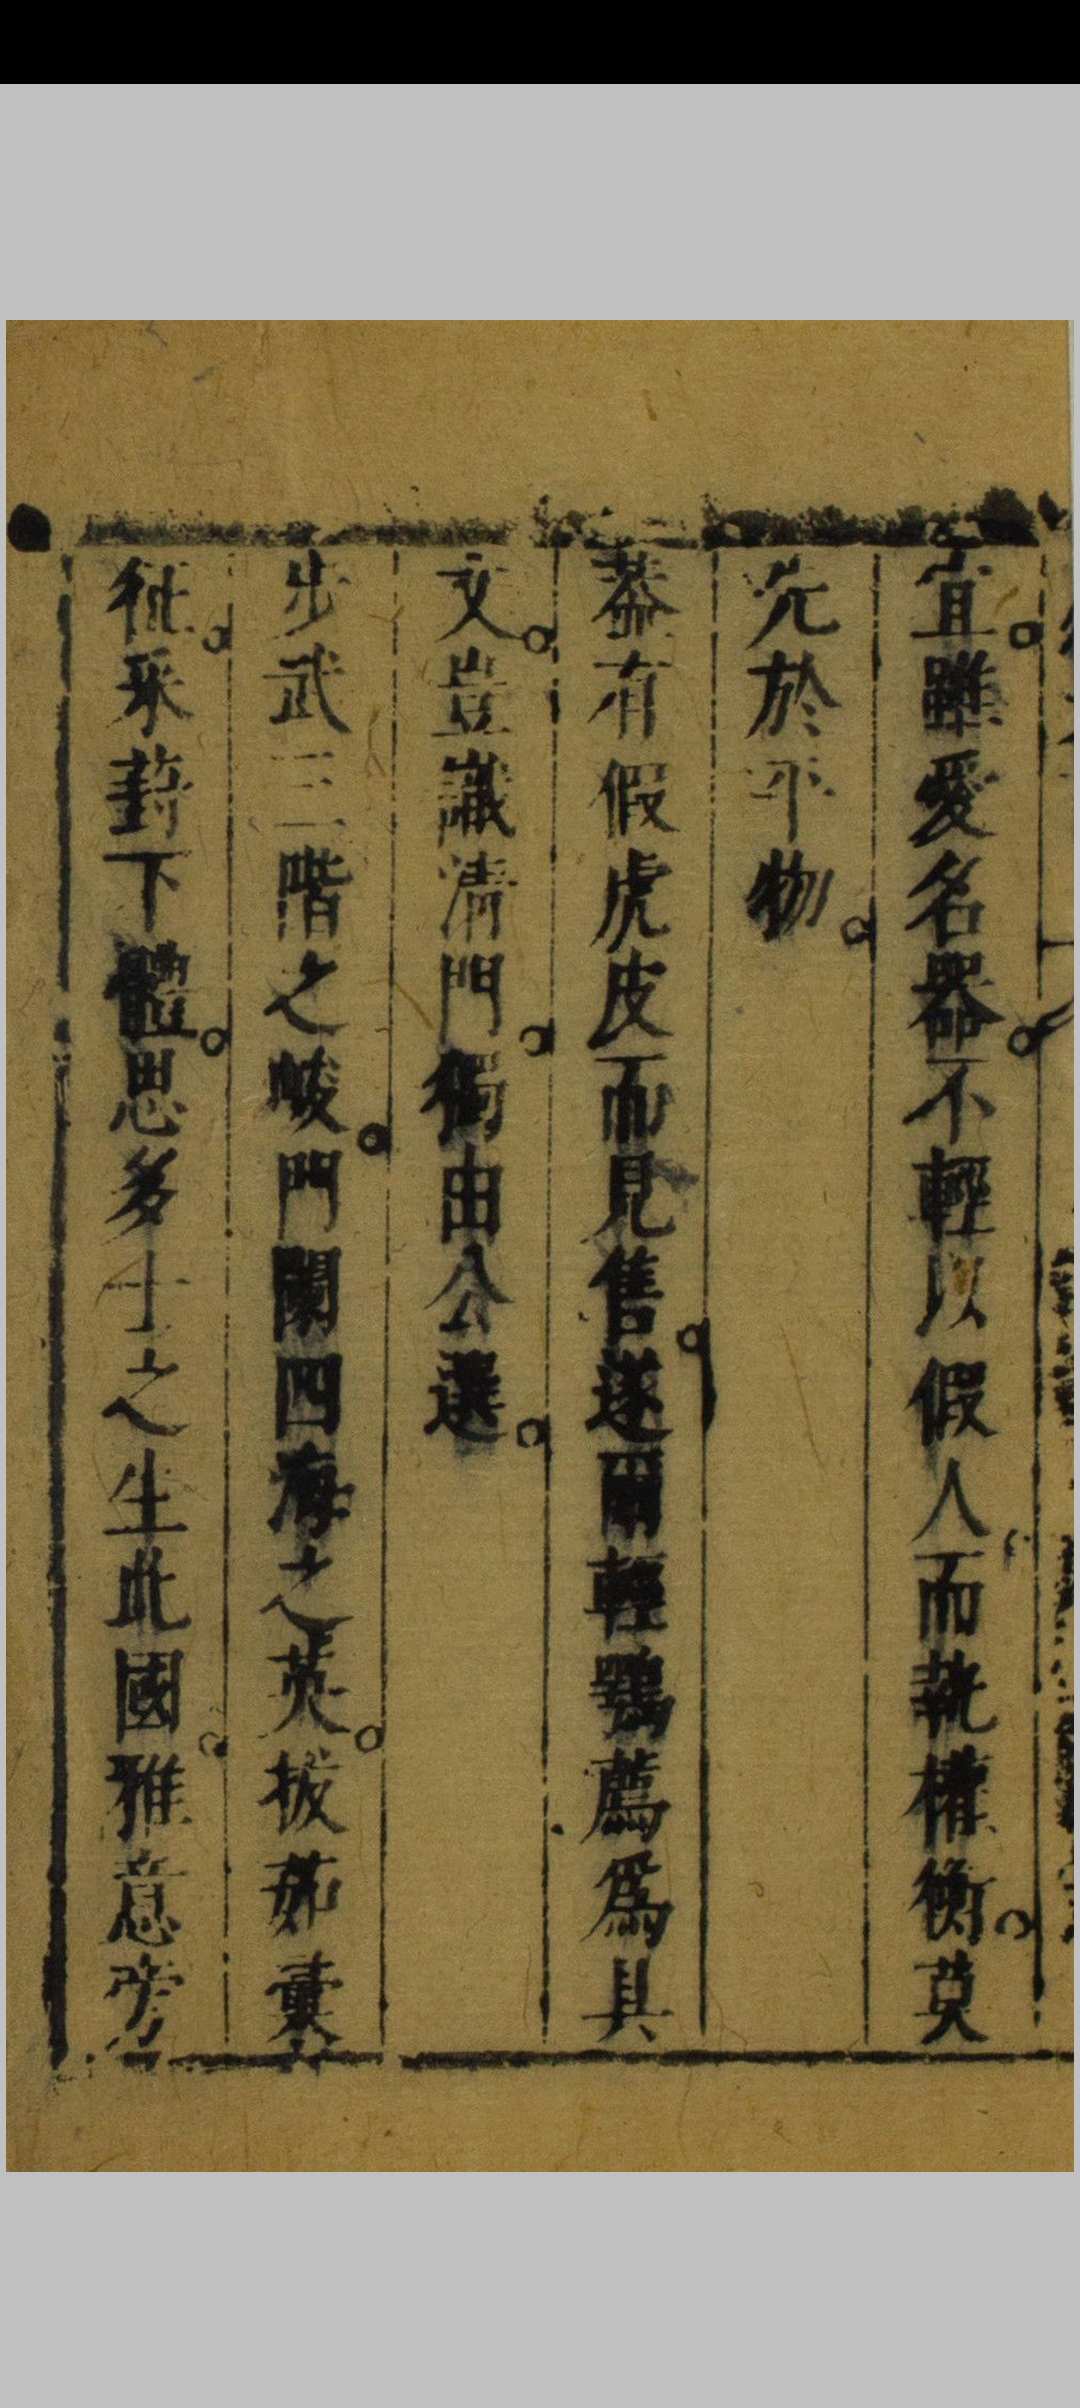 宜雖愛名器不輕以假人而執權衡莫
先於平物
蓋有假虎皮而見售遂爾輕鶚薦爲具
文豈識清門獨由公選
步武三階之峻門闌四海之英拔茹彙
征采葑下體思多士之生此國雅意旁